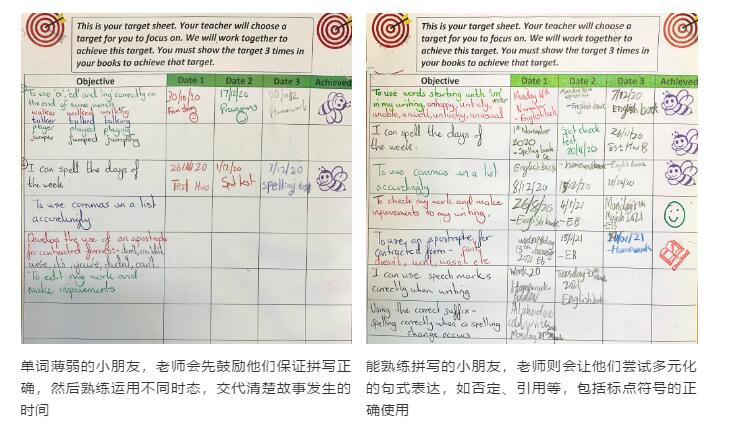 This is your target sheet. Your teacher will choose a
target for you to focus on. We will work together to
achieve this target. You must show the target 3 times in
your books to achieve that target.
Objective Date 1 Date 2 Date 3 Achieved
To use 's', 'ed' and 'ing' correctly on
the end of some words
walker walked walking
talker talked talking
player played playing
jumper jumped jumping
30/10/20
17/12/20
Pronouns
Homework
I can spell the days of
the week.
Test Hwb
1/12/20
Spot test
7/12/20
spelling test
To use commas in a list
accordingly
Develop the use of an apostrophe
for contracted forms:- don't, couldn't
were, it's, you're, didn't, can't.
To edit my work and
make improvements
单词薄弱的小朋友，老师会先鼓励他们保证拼写正
确，然后熟练运用不同时态，交代清楚故事发生的
时间
This is your target sheet. Your teacher will choose a
target for you to focus on. We will work together to
achieve this target. You must show the target 3 times in
your books to achieve that target.
Objective Date 1 Date 2 Date 3 Achieved
To use words starting with 'un'
in my writing, unhappy, untidy,
unable, unwell, unlucky, unusual
- English book
7/12/20
English book
I can spell the days of
the week.
1st November
2020
- Spelling book
Spot check
test
20/11/20
26/11/20
To use commas in a list
accordingly
English book
8/12/20
To check my work and make
improvements to my writing.
- English book
4/1/21
- EB
March 2021
To use an apostrophe for
contracted form - can't
doesn't, won't, wasn't etc
Wednesday
15/1/21
- EB
- Homework
I can use speech marks
correctly when writing
Homework
folder
2021
English book
Using the correct suffix -
spelling correctly when a spelling
change occurs
能熟练拼写的小朋友，老师则会让他们尝试多元化
的句式表达，如否定、引用等，包括标点符号的正
确使用